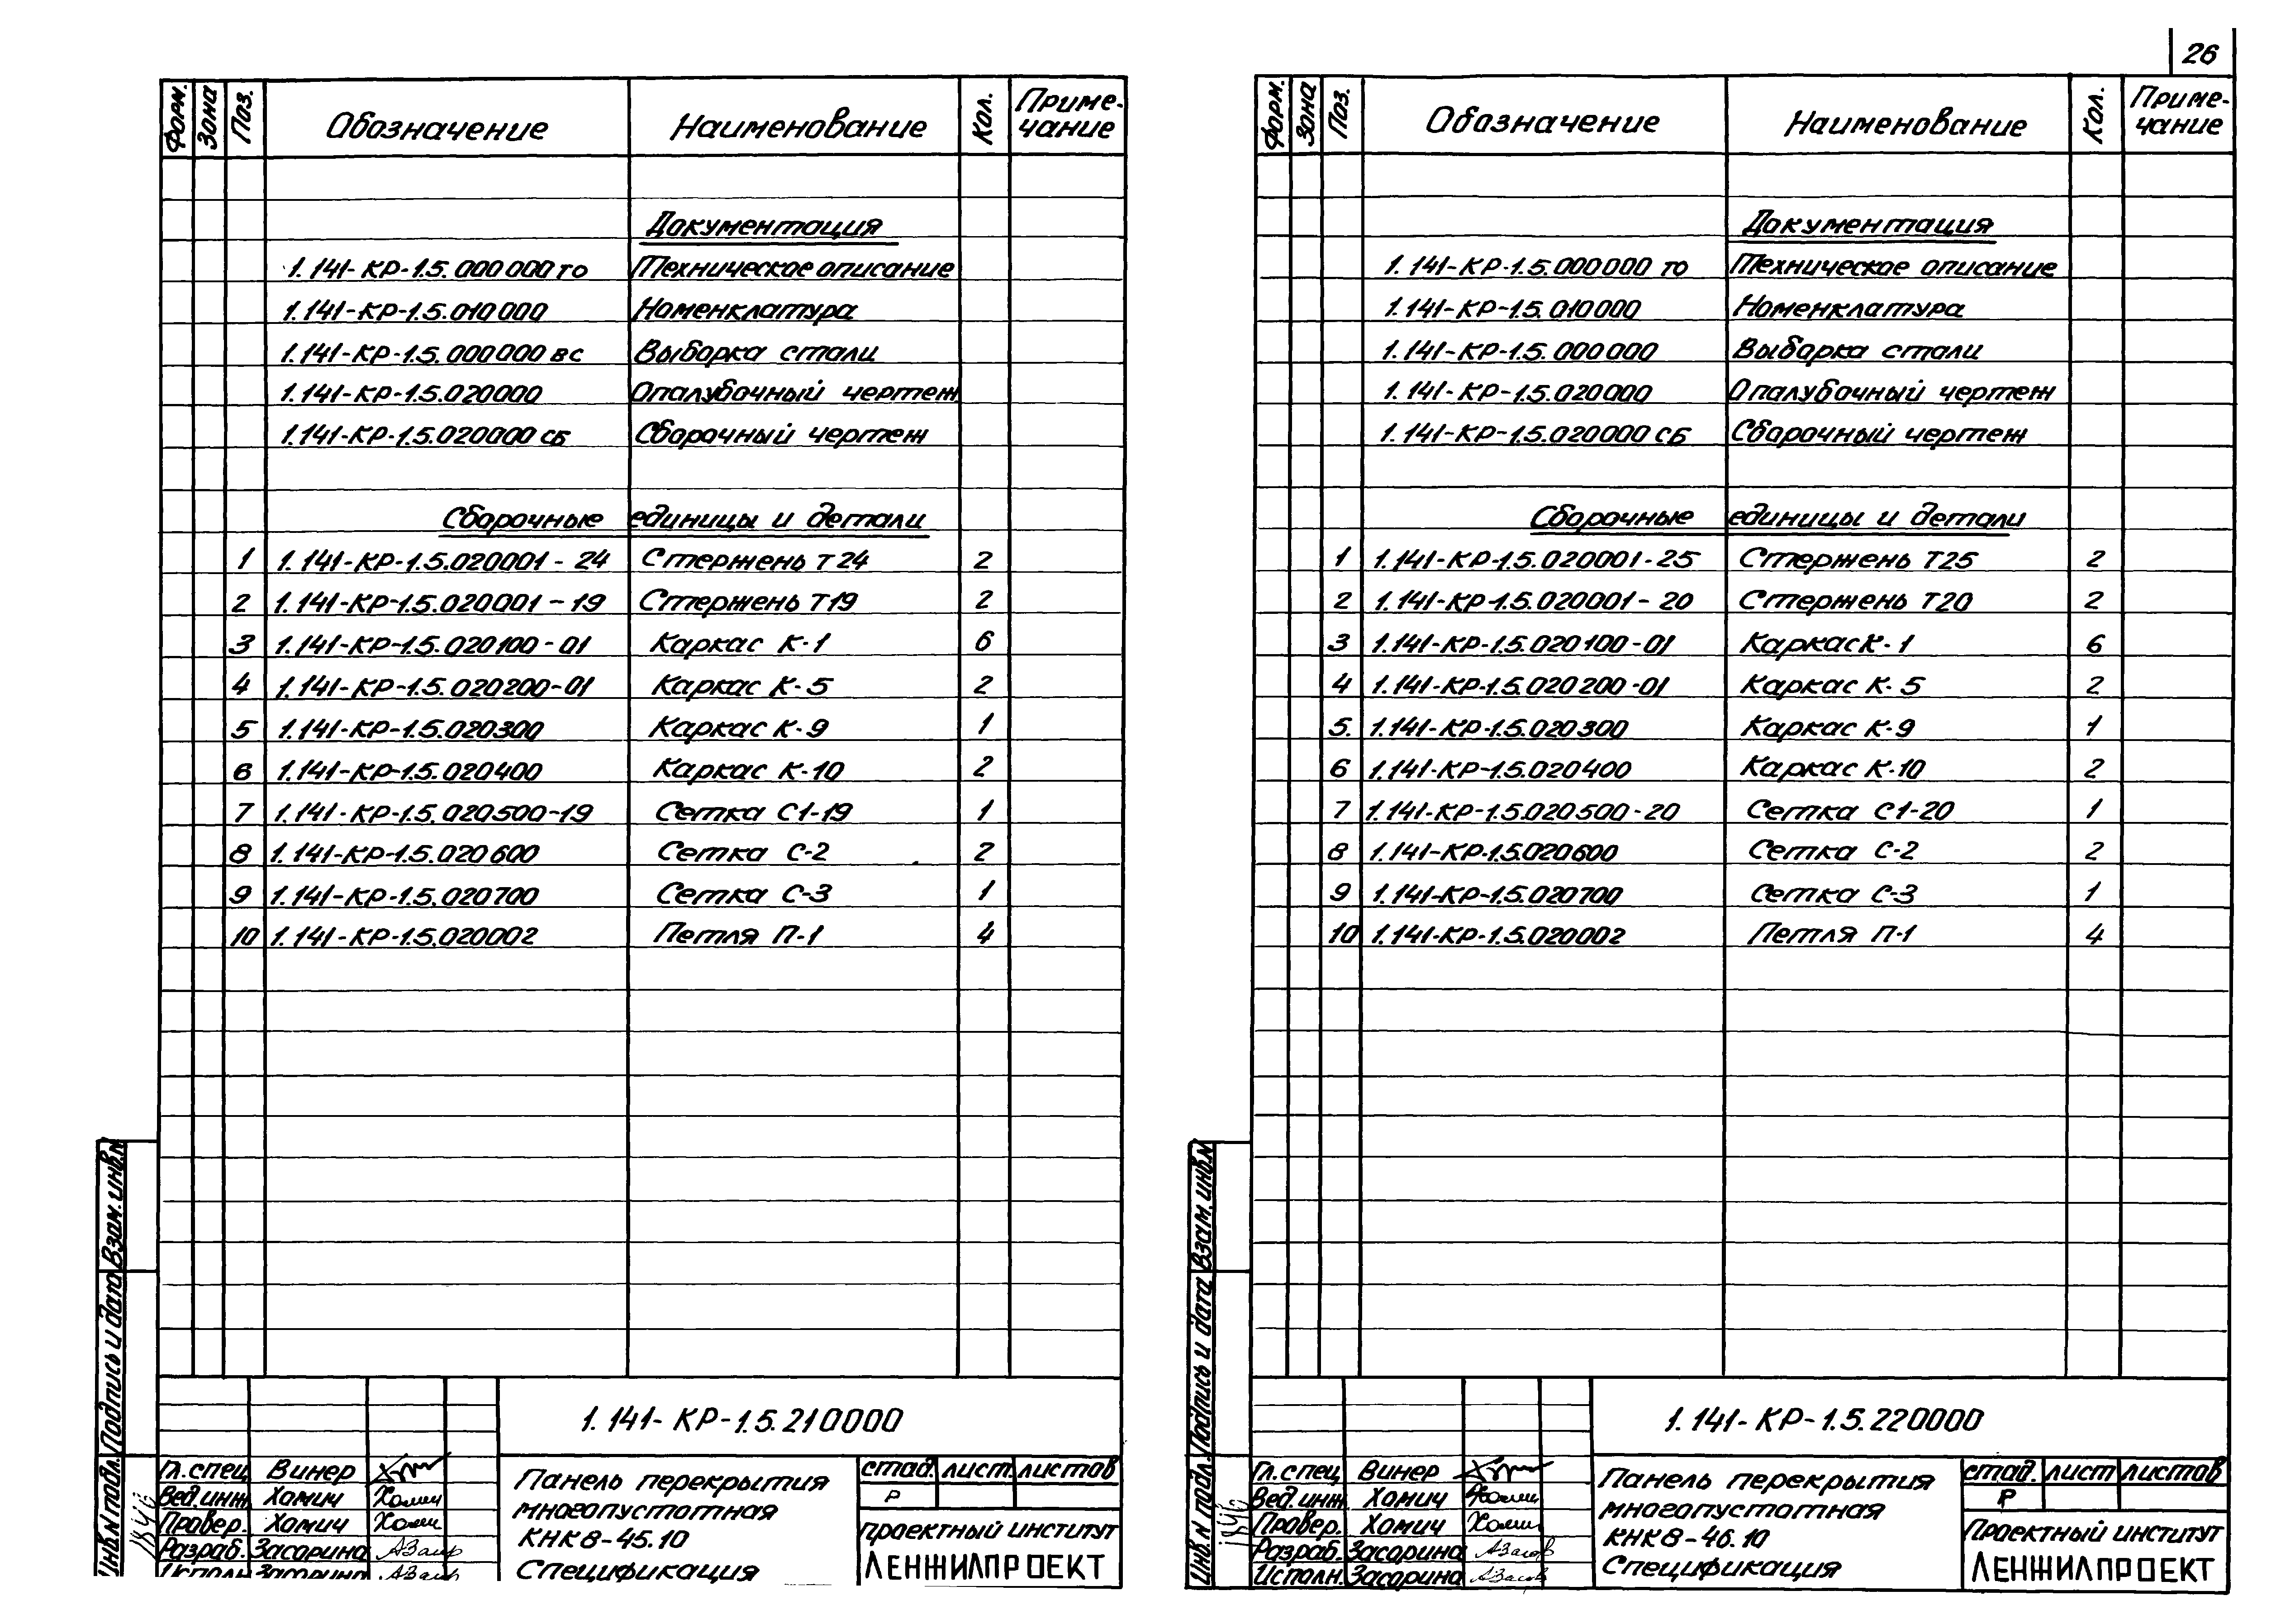 26
Форм. Зона Поз. Обозначение Наименование Кол. Приме-
чание
Документация
1.141-КР-1.5.000000 ТО Техническое описание
1.141-КР-1.5.010000 Номенклатура
1.141-КР-1.5.000000 ВС Выборка стали
1.141-КР-1.5.020000 Опалубочный чертеж
1.141-КР-1.5.020000 СБ Сборочный чертеж
Сборочные единицы и детали
1 1.141-КР-1.5.020001-24 Стержень Т24 2
2 1.141-КР-1.5.020001-19 Стержень Т19 2
3 1.141-КР-1.5.020100-01 Каркас К-1 6
4 1.141-КР-1.5.020200-01 Каркас К-5 2
5 1.141-КР-1.5.020300 Каркас К-9 1
6 1.141-КР-1.5.020400 Каркас К-10 2
7 1.141-КР-1.5.020500-19 Сетка С1-19 1
8 1.141-КР-1.5.020600 Сетка С-2 2
9 1.141-КР-1.5.020700 Сетка С-3 1
10 1.141-КР-1.5.020002 Петля П-1 4
Взам. инв.N
Подпись и дата
Инв. N подл.
1846
1.141-КР-1.5.210000
Гл. спец Винер
Вед. инж. Хомич
Провер. Хомич
Разраб. Засорина
Исполн. Засорина
Панель перекрытия
многопустотная
КНК8-45.10
Спецификация
стад. лист листов
Р
Проектный институт
ЛЕНЖИЛПРОЕКТ
Форм. Зона Поз. Обозначение Наименование Кол. Приме-
чание
Документация
1.141-КР-1.5.000000 ТО Техническое описание
1.141-КР-1.5.010000 Номенклатура
1.141-КР-1.5.000000 Выборка стали
1.141-КР-1.5.020000 Опалубочный чертеж
1.141-КР-1.5.020000 СБ Сборочный чертеж
Сборочные единицы и детали
1 1.141-КР-1.5.020001-25 Стержень Т25 2
2 1.141-КР-1.5.020001-20 Стержень Т20 2
3 1.141-КР-1.5.020100-01 Каркас К-1 6
4 1.141-КР-1.5.020200-01 Каркас К-5 2
5. 1.141-КР-1.5.020300 Каркас К-9 1
6 1.141-КР-1.5.020400 Каркас К-10 2
7 1.141-КР-1.5.020500-20 Сетка С1-20 1
8 1.141-КР-1.5.020600 Сетка С-2 2
9 1.141-КР-1.5.020700 Сетка С-3 1
10 1.141-КР-1.5.020002 Петля П-1 4
Взам. инв.N
Подпись и дата
Инв. N подл.
1846
1.141-КР-1.5.220000
Гл. спец Винер
Вед. инж. Хомич
Провер. Хомич
Разраб. Засорина
Исполн. Засорина
Панель перекрытия
многопустотная
КНК8-46.10
Спецификация
стад. лист листов
Р
Проектный институт
ЛЕНЖИЛПРОЕКТ